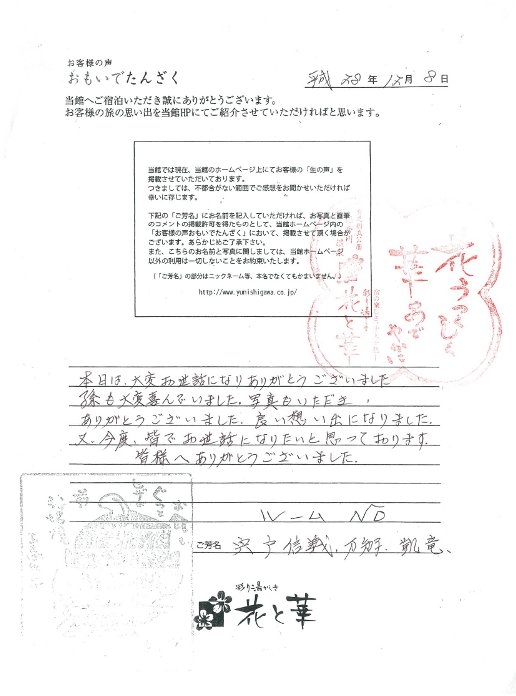 お客様の声
おもいでたんざく
平成28年12月8日
当館へご宿泊いただき誠にありがとうございます。
お客様の旅の思い出を当館HPにてご紹介させていただければと思います。
当館では現在、当館のホームページ上にてお客様の「生の声」を
掲載させていただいております。
つきましては、不都合がない範囲でご感想をお聞かせいただければ
幸いに存じます。
下記の「ご芳名」にお名前を記入していただければ、お写真と直筆
のコメントの掲載許可を得たものとして、当館ホームページ内の
「お客様の声おもいでたんざく」において、掲載させて頂く場合が
ございます。あらかじめご了承下さい。
また、こちらのお名前と写真に関しましては、当館ホームページ
以外の利用は一切しないことをお約束いたします。
(「ご芳名」の部分はニックネーム等、本名でなくてもかまいません。)
http://www.yunishigawa.co.jp/
花と華
本日は、大変お世話になりありがとうございました
孫も大変喜んでいました。写真もいただき、
ありがとうございました。良い想い出になりました。
又、今度、皆でお世話になりたいと思っております。
皆様へありがとうございました。
ご芳名
彩り湯かしき
花と華